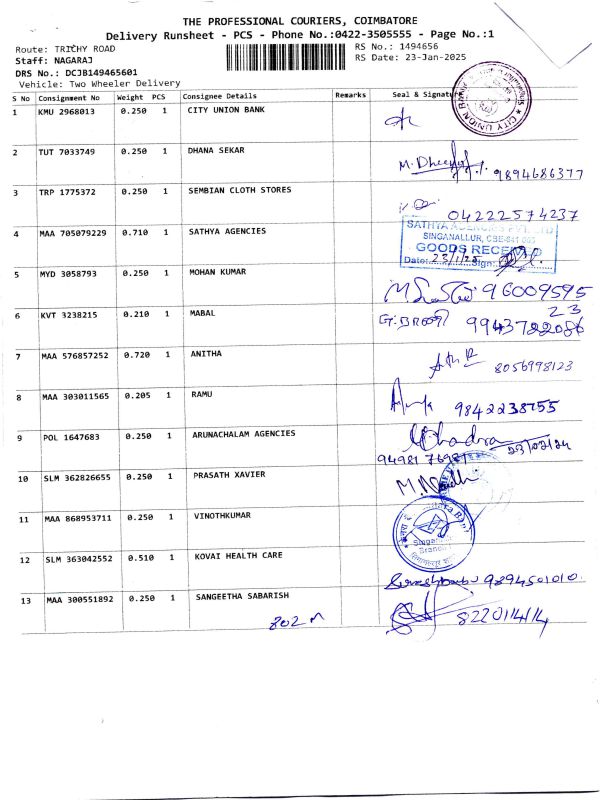 THE PROFESSIONAL COURIERS, COIMBATORE
Delivery Runsheet - PCS - Phone No.:0422-3505555 - Page No.:1
Route: TRICHY ROAD
RS No.: 1494656
Staff: NAGARAJ
RS Date: 23-Jan-2025
DRS No.: DCJB149465601
Vehicle: Two Wheeler Delivery
S No Consignment No Weight PCS Consignee Details Remarks Seal & Signature
1 KMU 2968013 0.250 1 CITY UNION BANK
CITY UNION
2 TUT 7033749 0.250 1 DHANA SEKAR
9894686377
3 TRP 1775372 0.250 1 SEMBIAN CLOTH STORES
04222574237
4 MAA 705079229 0.710 1 SATHYA AGENCIES
SATHYA AGENCIES PVT LTD
SINGANALLUR, CBE-641 005
GOODS RECEIVED
Date: 23/1/25 Sign:
5 MYD 3058793 0.250 1 MOHAN KUMAR
96009595
23
6 KVT 3238215 0.210 1 MABAL
9943722086
7 MAA 576857252 0.720 1 ANITHA
8056998123
8 MAA 303011565 0.205 1 RAMU
9842238755
9 POL 1647683 0.250 1 ARUNACHALAM AGENCIES
Chadra
94981 76981
10 SLM 362826655 0.250 1 PRASATH XAVIER
11 MAA 868953711 0.250 1 VINOTHKUMAR
Branch
12 SLM 363042552 0.510 1 KOVAI HEALTH CARE
9894501010
13 MAA 300551892 0.250 1 SANGEETHA SABARISH
8220114114